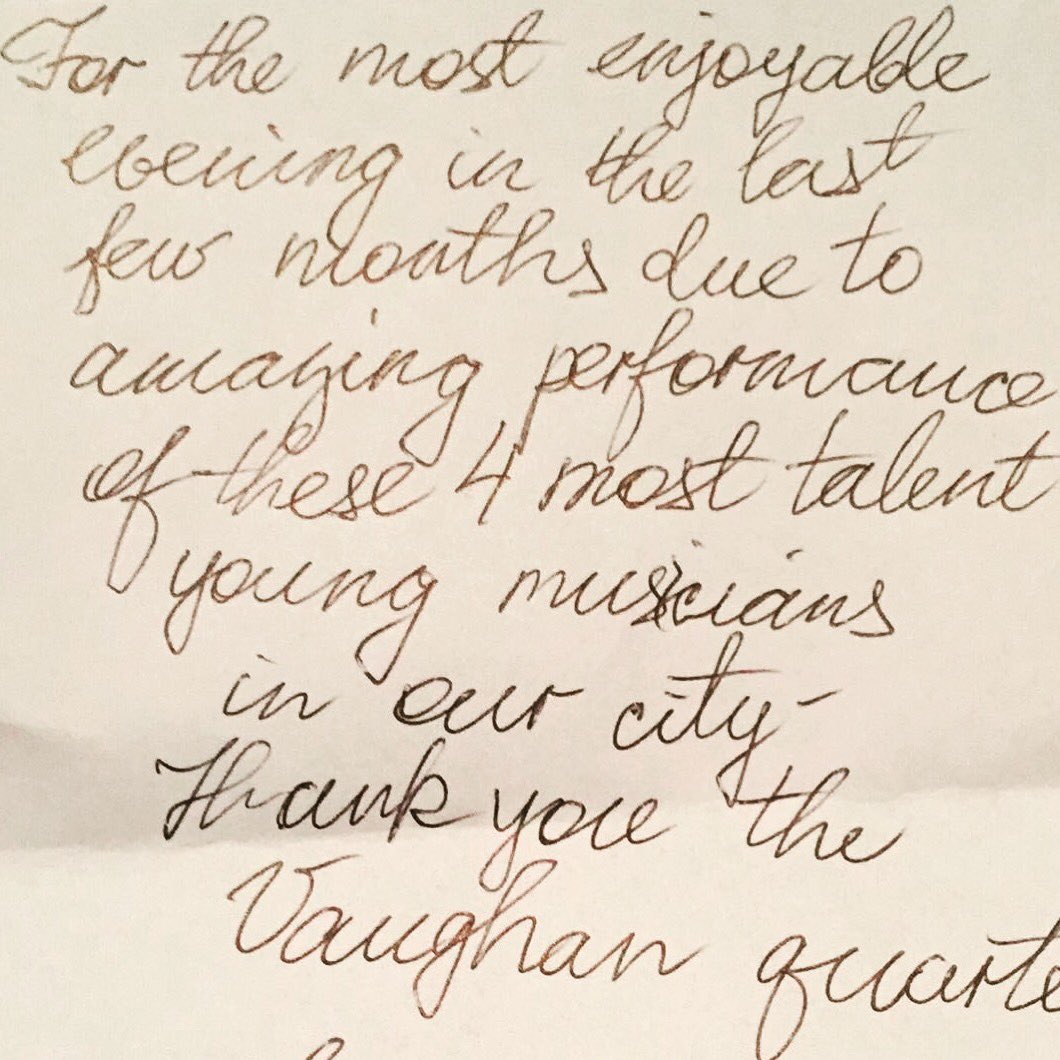 For the most enjoyable
evening in the last
few months due to
amazing performance
of these 4 most talent
young musicians
in our city -
Thank you the
Vaughan quarte